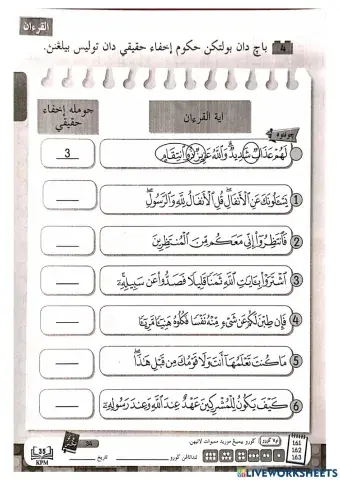 القرءان
4 باچ دان بولتكن حكوم إخفاء حقيقي دان توليس بيلڠن.
جومله إخفاء حقيقي
أية القرءان
چونتوه
لَهُمْ عَذَابٌ شَدِيدٌ وَاللَّهُ عَزِيزٌ ذُو انْتِقَامٍ
3
1 يَسْـَٔلُونَكَ عَنِ الْأَنفَالِ ۖ قُلِ الْأَنفَالُ لِلَّهِ وَالرَّسُولِ ۖ
2 فَانتَظِرُوا إِنِّي مَعَكُم مِّنَ الْمُنتَظِرِينَ
3 اشْتَرَوْا بِـَٔايَـٰتِ اللَّهِ ثَمَنًا قَلِيلًا فَصَدُّوا عَن سَبِيلِهِ ۚ
4 فَإِن طِبْنَ لَكُمْ عَن شَيْءٍ مِّنْهُ نَفْسًا فَكُلُوهُ هَنِيٓـًٔا مَّرِيٓـًٔا
5 مَا كُنتَ تَعْلَمُهَا أَنتَ وَلَا قَوْمُكَ مِن قَبْلِ هَـٰذَا ۖ
6 كَيْفَ يَكُونُ لِلْمُشْرِكِينَ عَهْدٌ عِندَ اللَّهِ وَعِندَ رَسُولِهِ
35
KPM
36
تاريخ
161
162
163
LIVEWORKSHEETS